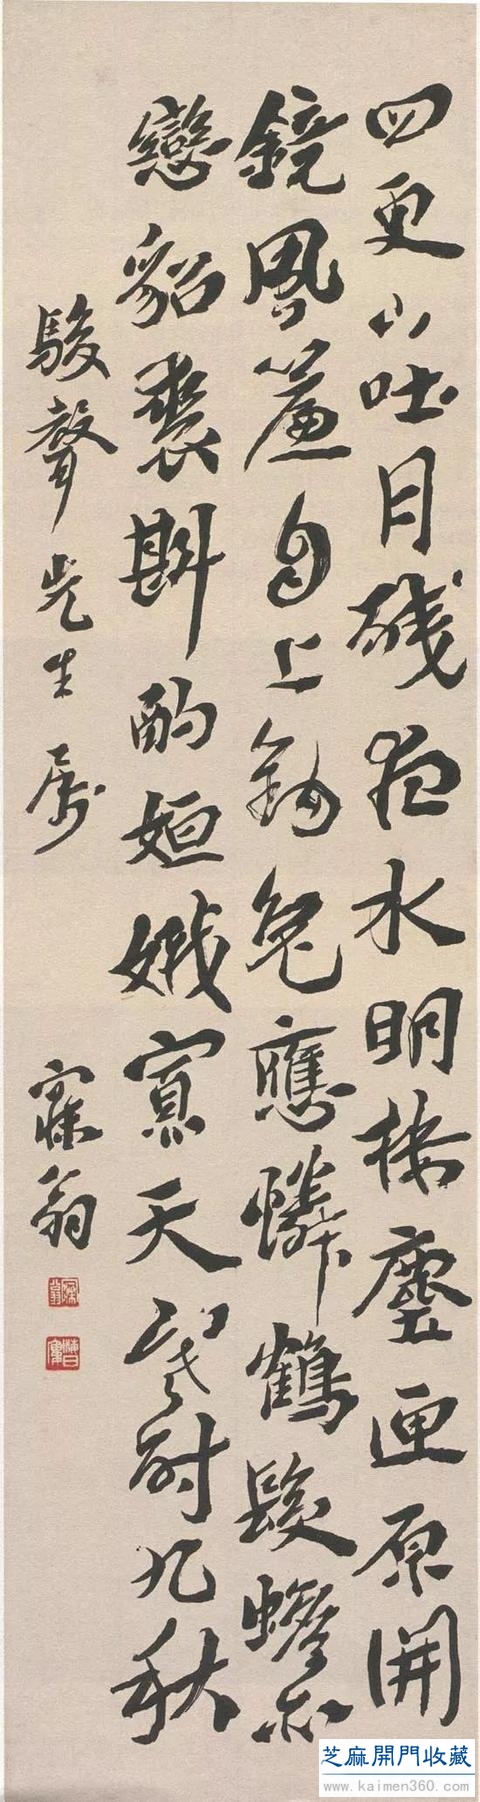 四更山吐月殘夜水明樓塵匣原開
鏡風簾自上鈎兔應憐鶴髮蟾亦
戀貂裘斟酌姮娥寡天寒耐九秋
駿聲先生屬
寐翁
芝麻開門收藏
www.kaimen360.com